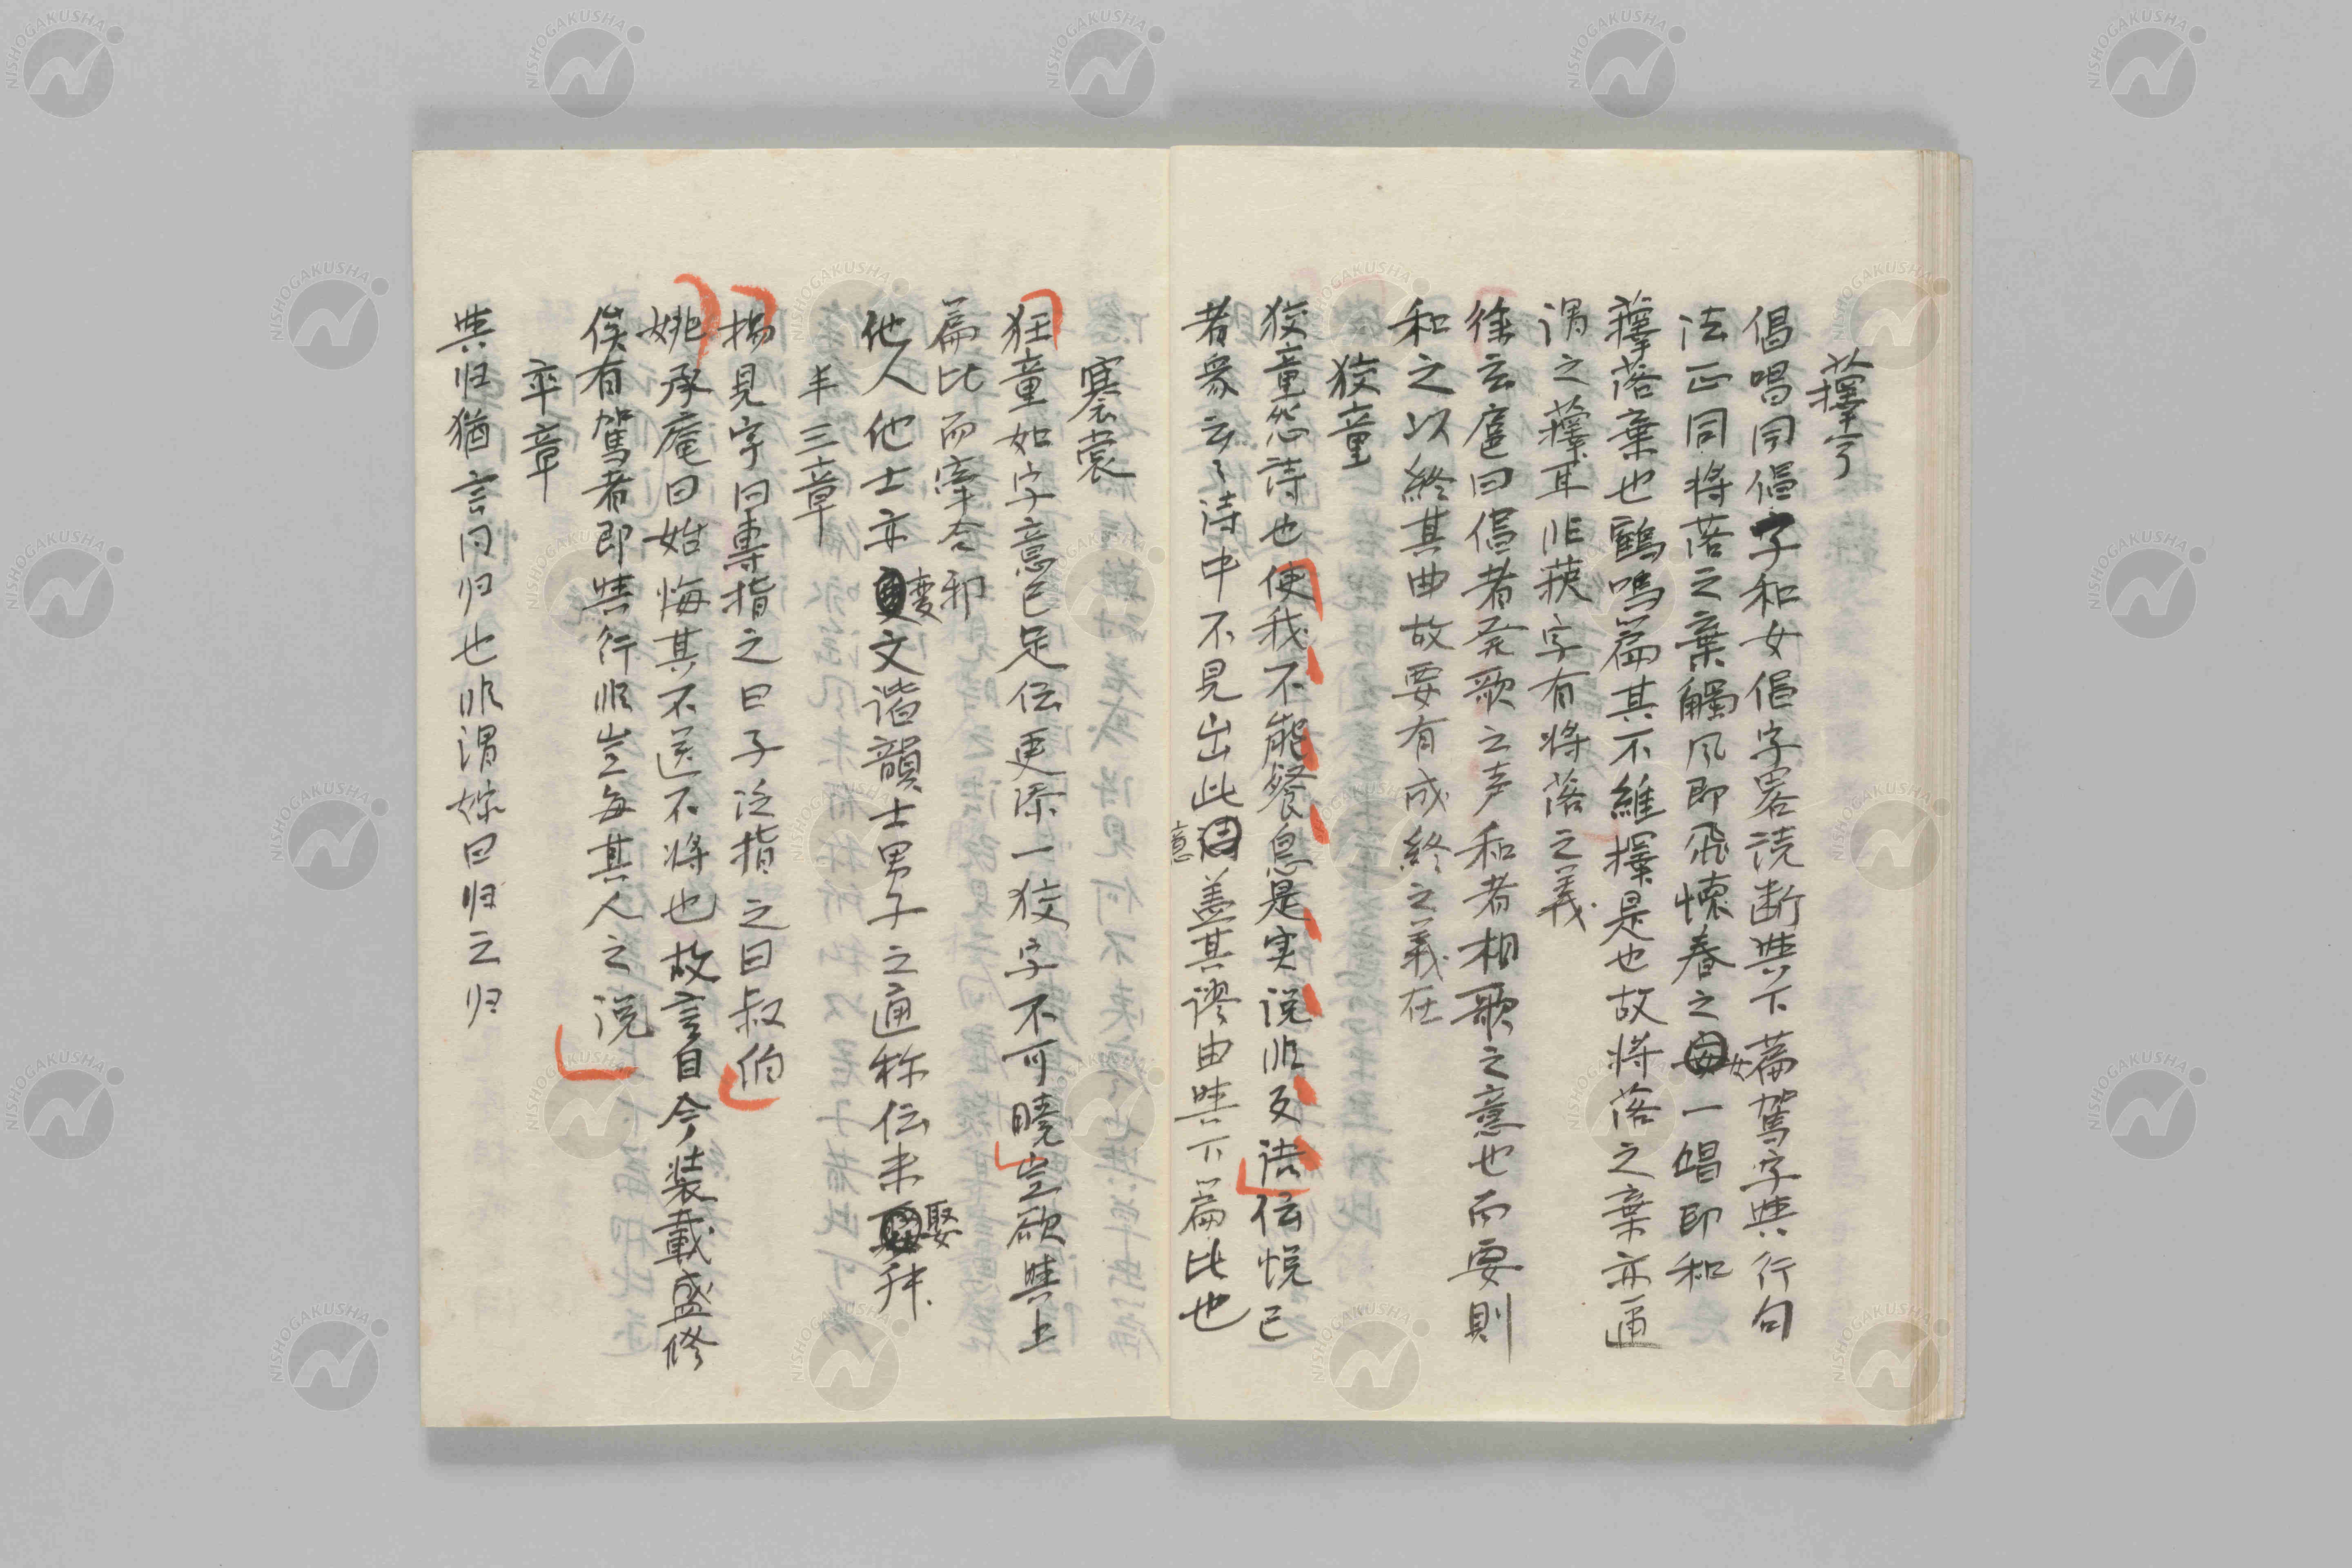 蘀兮
倡唱同倡字和女倡字畧読断与下篇駕字与行句
法正同将落之葉觸风即飛懐春之女一唱即和
蘀落葉也鶴鳴篇其不維蘀是也故将落之葉亦通
谓之蘀耳非蘀字有将落之義
徐云扈曰倡者発歌之声和者相歌之意也而要則
和之以終其曲故要有成終之義在
狡童
狡童怨詩也使我不能餐息是实説非反語伝悦已
者衆云々詩中不見出此意盖其謬由与下篇比也
褰裳
狂童如字意已足伝更添一狡字不可曉豈欲与上
篇比而牽合邪
他人他士亦変文諧韻士男子之通称伝未娶非
丰三章
楊見宇曰專指之曰子泛指之曰叔伯
姚承菴曰始悔其不送不将也故言自今装載盛修
俟有駕者即与行非豈每其人之説
卒章
与归猶言同归也非谓嫁曰归之归
NISHOGAKUSHA